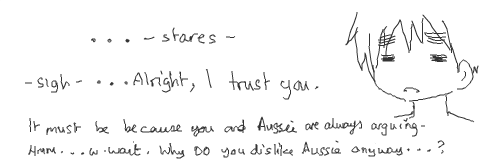 ... - stares -
- sigh - ... Alright, I trust you.
It must be because you and Aussie are always arguing -
Hmm... w-wait. Why DO you dislike Aussie anyway...?